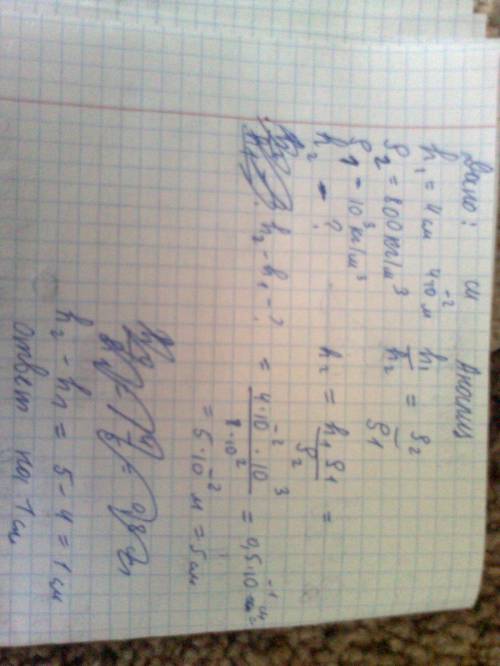 Дано: си Анализ
h₁ = 4 см 4·10⁻² м h₁/h₂ = ρ₂/ρ1
ρ₂ = 800 кг/м³
ρ1 = 10³ кг/м³
h₂ - ? h₂ = h₁ρ1/ρ₂ =
h₂ - h₁ - ? = 4·10⁻²·10³/8·10² = 0,5·10⁻¹ м =
= 5·10⁻² м = 5 см
h₂ - h₁ = 5 - 4 = 1 см
ответ на 1 см